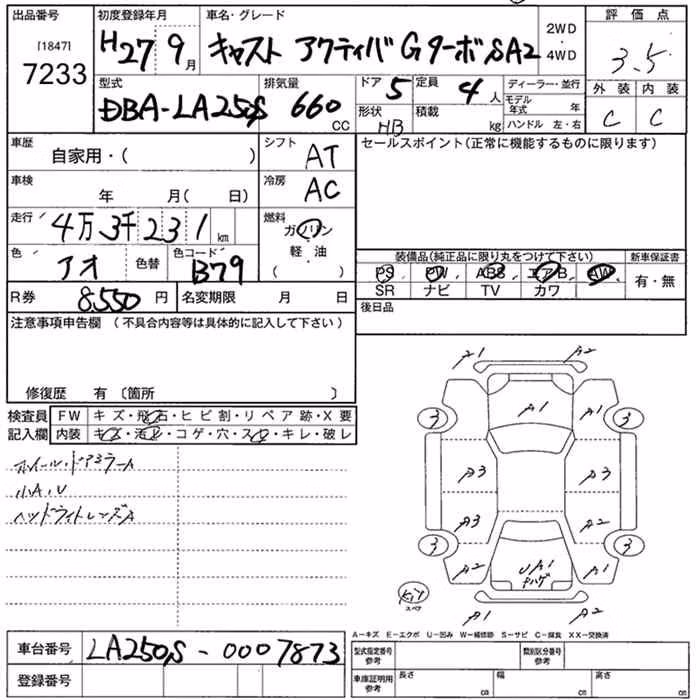 出品番号 初度登録年月 車名・グレード 2WD 評価点
[1847] H27 9月 キャスト アクティバ Gターボ SA2 4WD 3.5
7233
型式 排気量 ドア 5 定員 4人 ディーラー・並行 外装 内装
DBA-LA250S 660 CC 形状 HB 積載 kg モデル年式 年 C C
ハンドル 左・右
車歴 自家用・( ) シフト AT セールスポイント(正常に機能するものに限ります)
車検 年 月( 日) 冷房 AC
走行 4万3千231 km 燃料 ガソリン・軽油・( )
色 アオ 色替 色コード B79 装備品(純正品に限り丸をつけて下さい) 新車保証書
PS PW ABS エアB AW 有・無
R券 8,550円 名変期限 月 日 SR ナビ TV カワ
注意事項申告欄(不具合内容等は具体的に記入して下さい) 後日品
修復歴 有 〔箇所 〕
検査員 FW キズ・飛石・ヒビ割・リペア跡・X要
記入欄 内装 キズ・汚れ・コゲ・穴・スレ・キレ・破レ
ホイール・ドアミラーA
小A、U
ヘッドライトレンズA
A1 A2
A1 A1
3 3
A3 A3
A3 A2
3 3
A2 UA1 A1
ハゲ
スペア
A1 A2
A-キズ E-エクボ U-凹み W-補修跡 S-サビ C-腐食 XX-交換済
車台番号 LA250S-0007873 型式指定番号 参考 類別区分番号 参考
登録番号 車庫証明用 参考 長さ cm 幅 cm 高さ cm